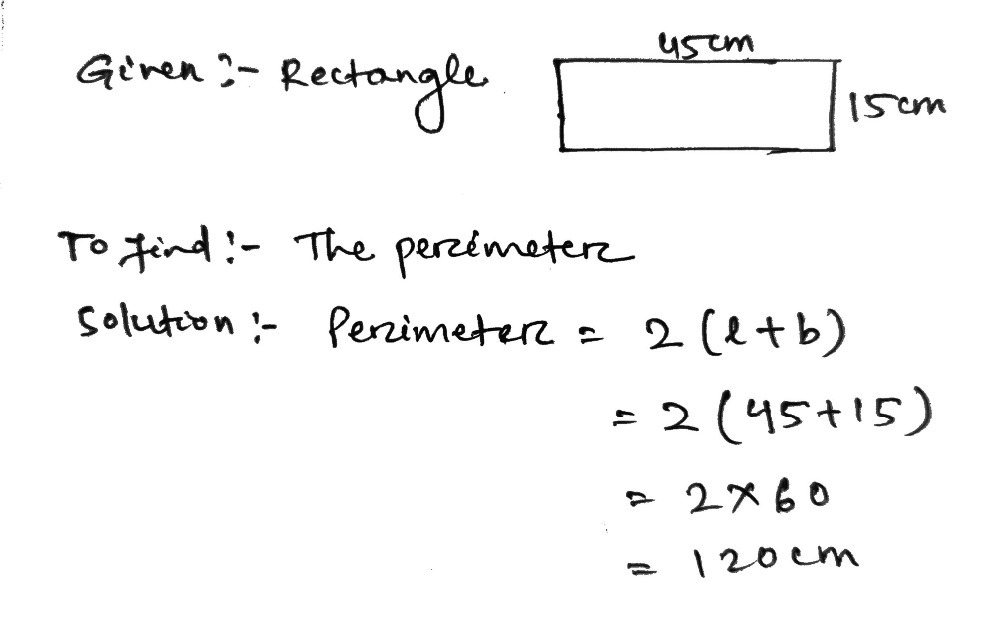 45cm
Given :- Rectangle
15cm
To find :- The perimeter
Solution :- Perimeter = 2 (l+b)
= 2 (45+15)
= 2×60
= 120cm